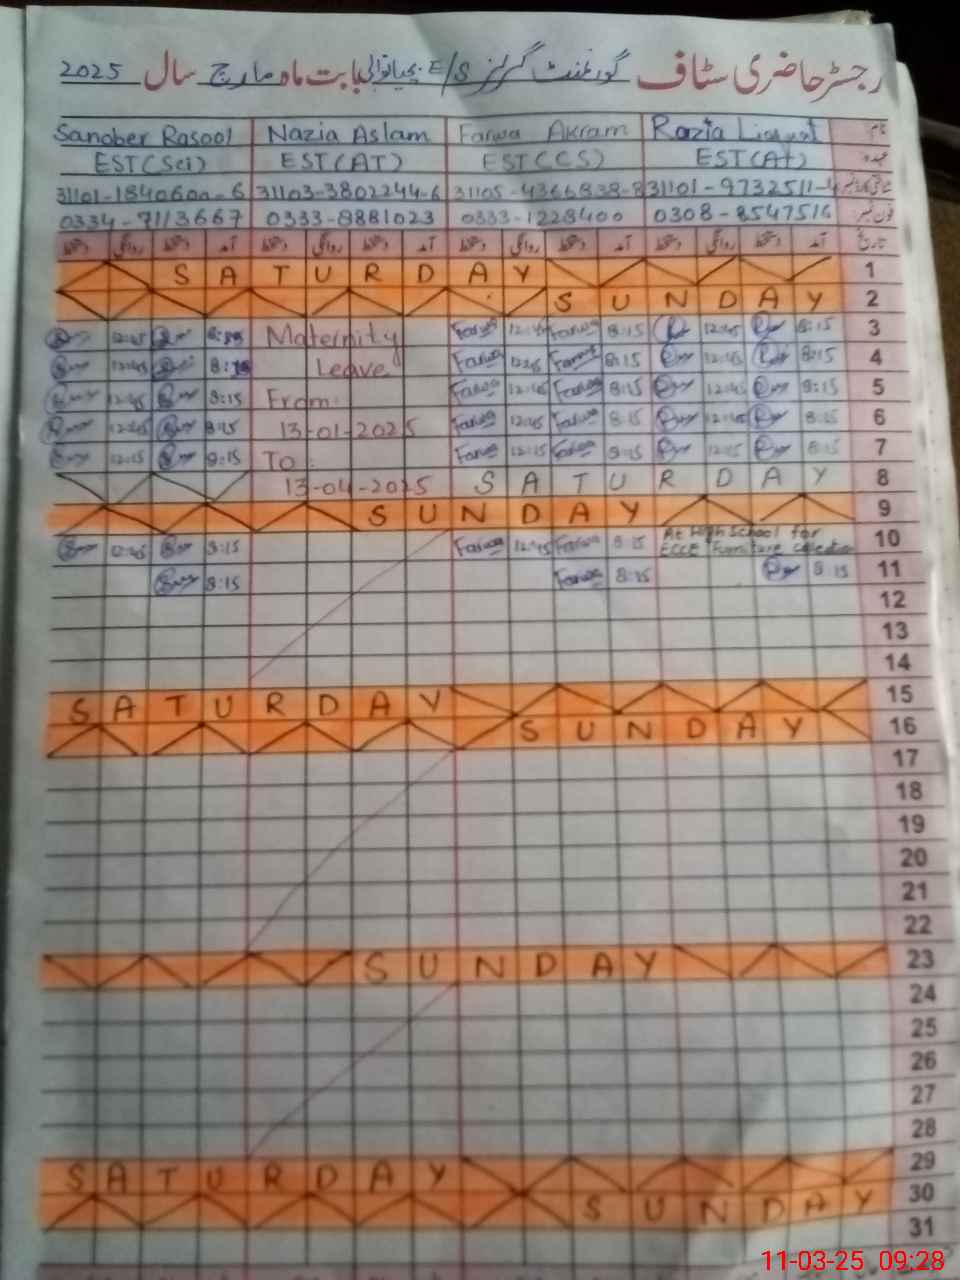 رجسٹر حاضری سٹاف گورنمنٹ گرلز E/S بابت ماہ مارچ سال 2025
Sanober Rasool Nazia Aslam Farwa Akram Razia Liaquat نام
EST(Sci) EST(AT) EST(CS) EST(At) عہدہ
31101-1840600-6 31103-3802244-6 31105-4366838-8 31101-9732511-4
0334-7113667 0333-8881023 0333-1228400 0308-8547516 فون نمبر
دستخط روانگی دستخط آمد دستخط روانگی دستخط آمد دستخط روانگی دستخط آمد دستخط روانگی دستخط آمد تاریخ
SATURDAY 1
SUNDAY 2
12:45 Maternity Farwa 12:45 Farwa 8:15 12:45 8:15 3
12:45 8:15 Leave Farwa 12:45 Farwa 8:15 12:45 8:15 4
12:45 8:15 From: Farwa 12:45 Farwa 8:15 12:45 8:15 5
12:45 8:15 13-01-2025 Farwa 12:45 Farwa 8:15 12:45 8:15 6
12:15 8:15 To: Farwa 12:15 Farwa 8:15 12:15 8:15 7
13-04-2025 SATURDAY 8
SUNDAY 9
12:45 8:15 Farwa 12:45 Farwa 8:15 At High School for ECCE Furniture collection 10
8:15 Farwa 8:15 8:15 11
12
13
14
SATURDAY 15
SUNDAY 16
17
18
19
20
21
22
SUNDAY 23
24
25
26
27
28
SATURDAY 29
SUNDAY 30
31
11-03-25 09:28